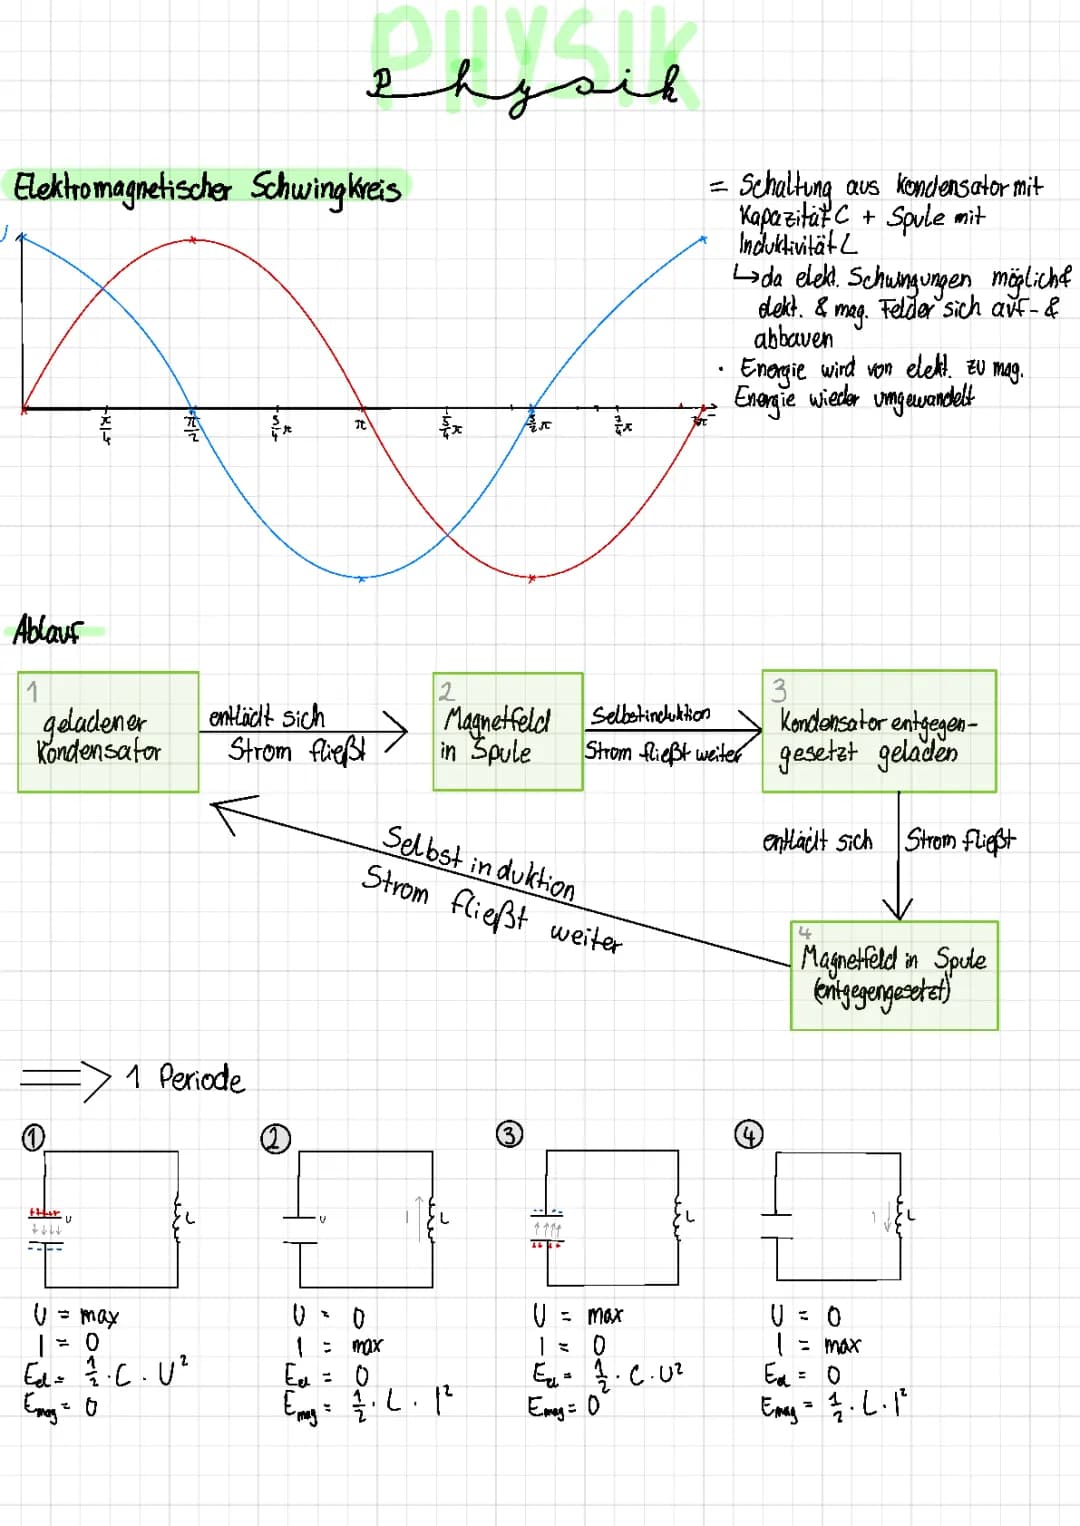 PHYSIK
Physik
Elektromagnetischer Schwingkreis
= Schaltung aus Kondensator mit
Kapazität C + Spule mit
Induktivität L
↳ da elekt. Schwingungen möglich &
elekt. & mag. Felder sich auf- &
abbauen
· Energie wird von elekt. zu mag.
Energie wieder umgewandelt
U
π/4
π/2
3/4 π
π
5/4 π
3/2 π
7/4 π
2π
Ablauf
1
geladener
Kondensator
entlädt sich
Strom fließt
2
Magnetfeld
in Spule
Selbstinduktion
Strom fließt weiter
3
Kondensator entgegen-
gesetzt geladen
entlädt sich
Strom fließt
Selbstinduktion
Strom fließt weiter
4
Magnetfeld in Spule
(entgegengesetzt)
⇒ 1 Periode
①
U
L
U = max
I = 0
Eel = 1/2 · C · U²
Emag = 0
②
U
I
L
U = 0
I = max
Eel = 0
Emag = 1/2 · L · I²
③
L
U = max
I = 0
Eel = 1/2 · C · U²
Emag = 0
④
I
L
U = 0
I = max
Eel = 0
Emag = 1/2 · L · I²